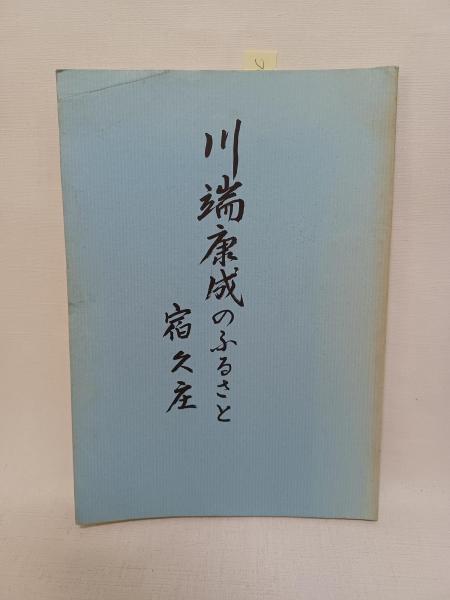 川端康成のふるさと
宿久庄